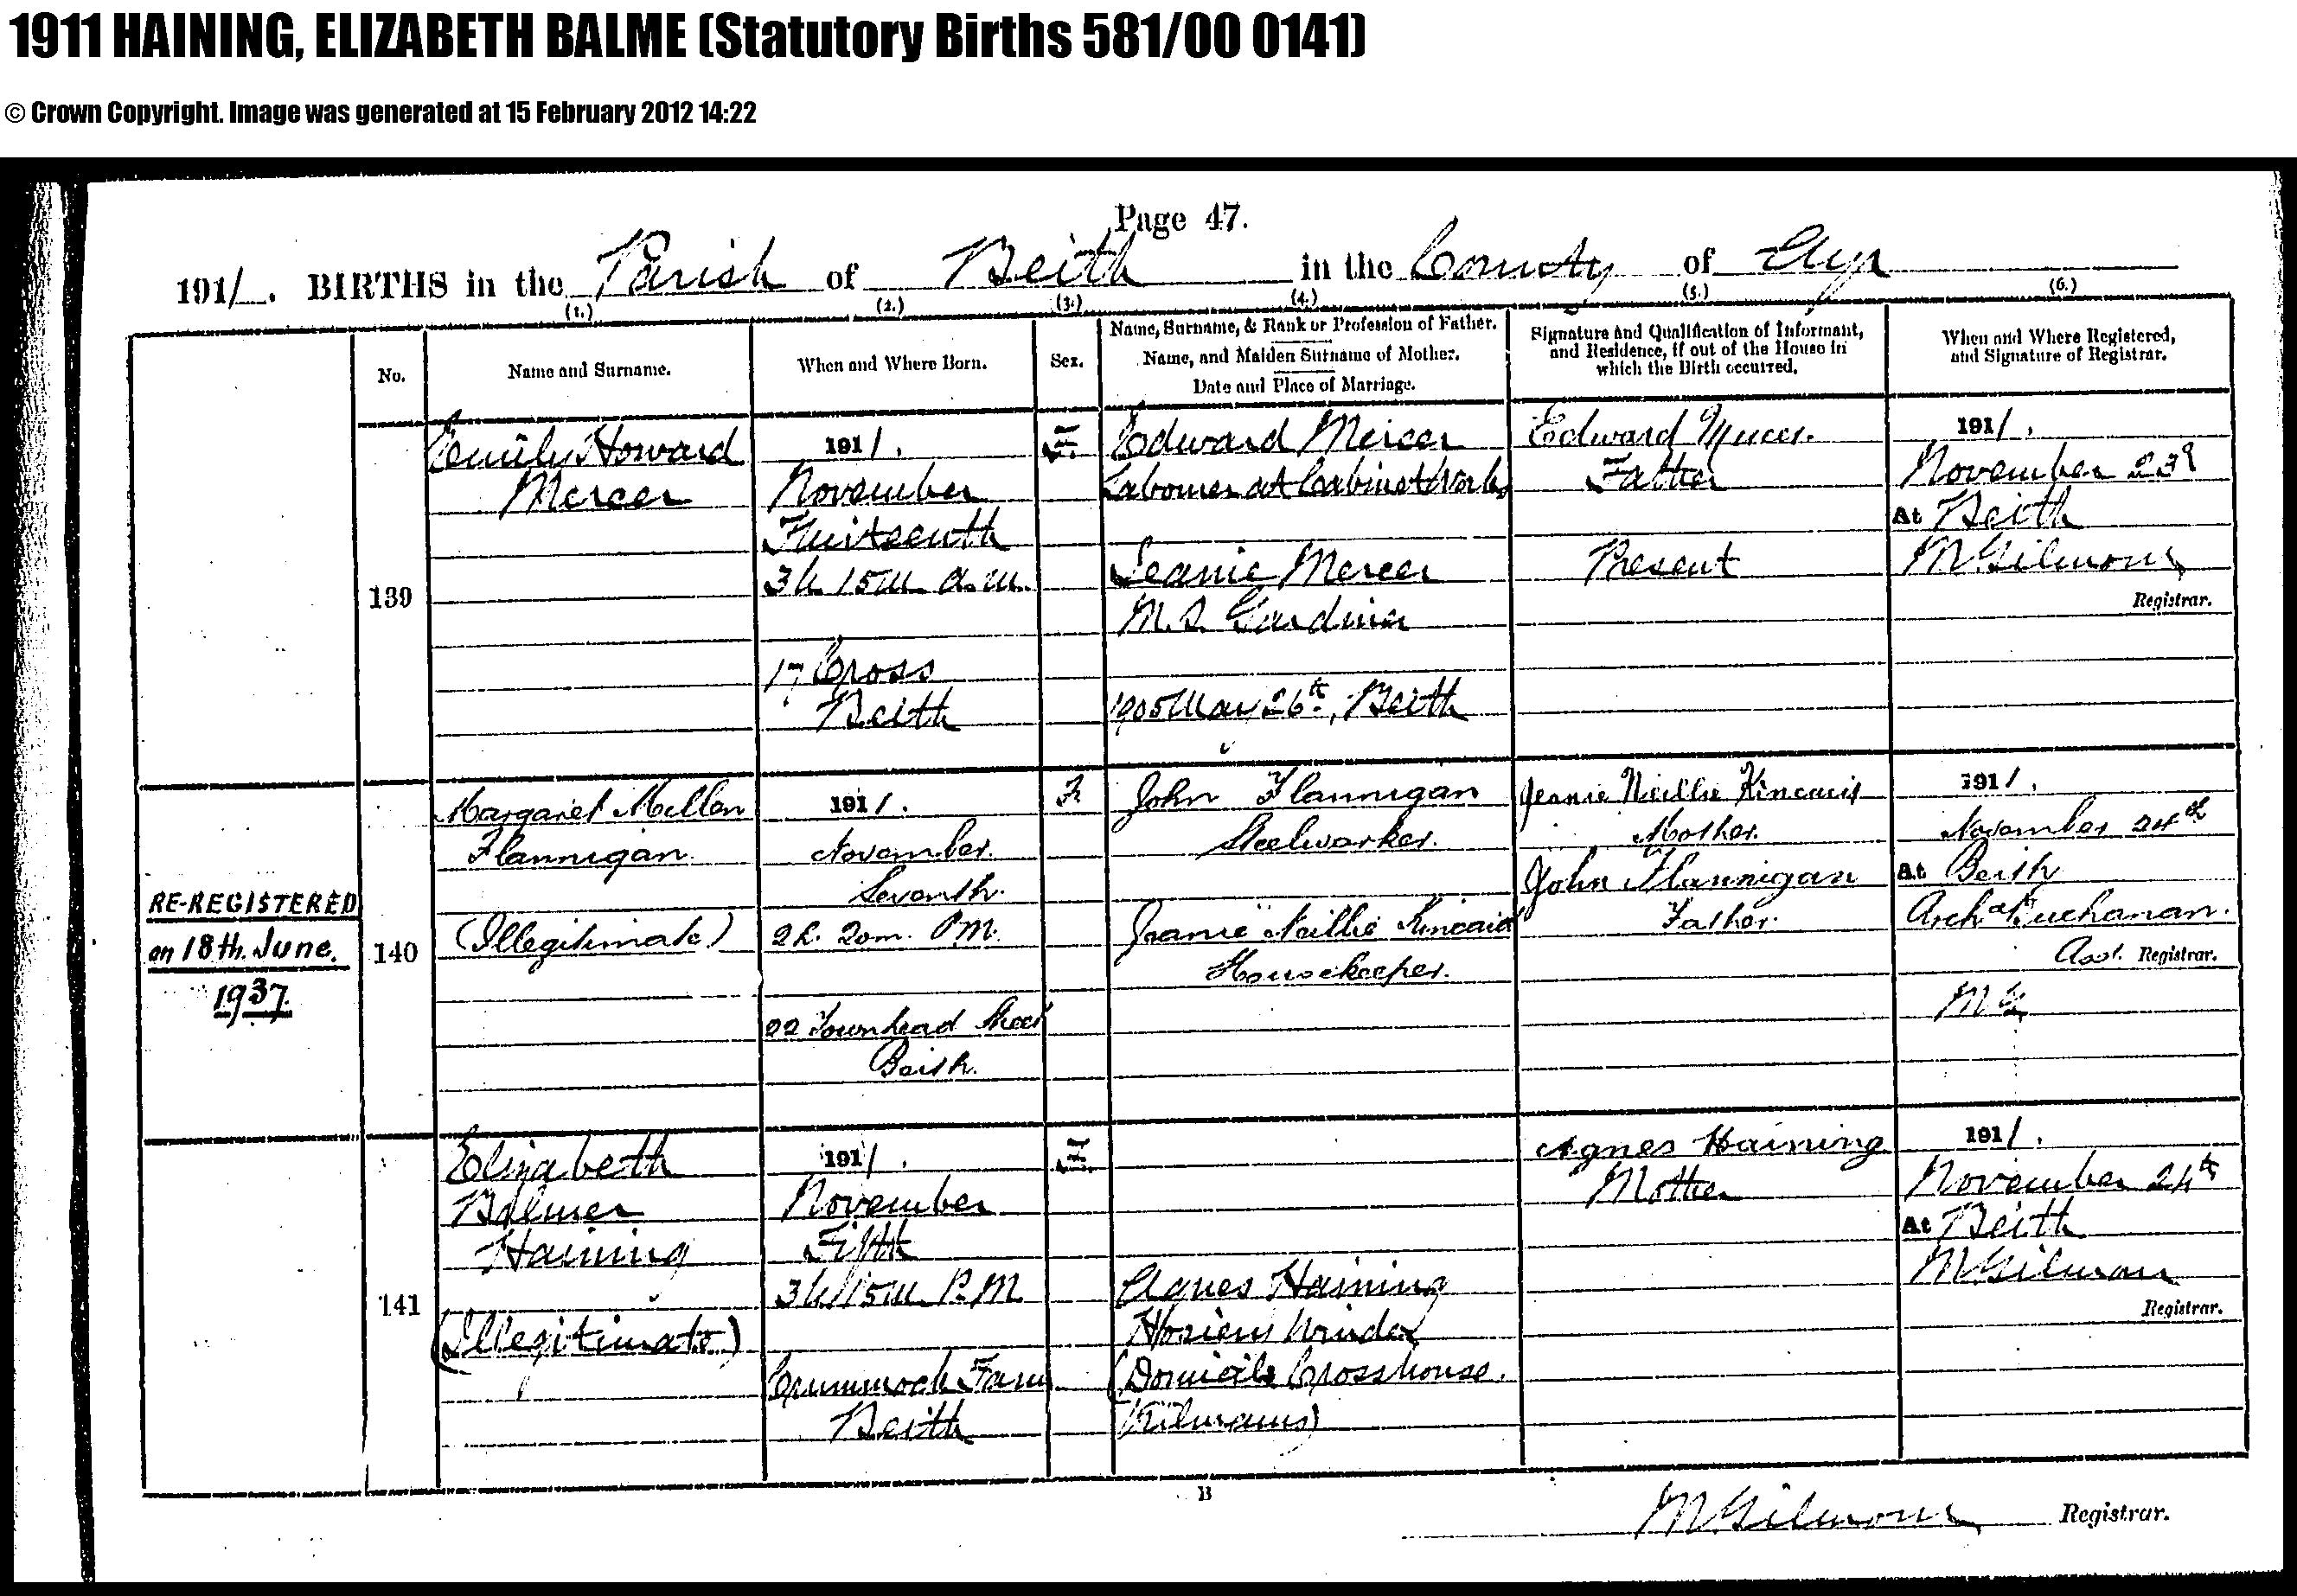 1911 HAINING, ELIZABETH BALME (Statutory Births 581/00 0141)
© Crown Copyright. Image was generated at 15 February 2012 14:22
Page 47.
1911. BIRTHS in the Parish of Beith in the County of Ayr
(1.) (2.) (3.) (4.) (5.) (6.)
No.
Name and Surname.
When and Where Born.
Sex.
Name, Surname, & Rank or Profession of Father.
Name, and Maiden Surname of Mother.
Date and Place of Marriage.
Signature and Qualification of Informant,
and Residence, if out of the House in
which the Birth occurred.
When and Where Registered,
and Signature of Registrar.
139
Emily Howard
Mercer
1911.
November
Thirteenth
3h 15m a.m.
17 Cross
Beith
F.
Edward Mercer
Labourer at Cabinet Works
Jeanie Mercer
M.S. Gardiner
1905 May 26th, Beith
Edward Mercer
Father
Present
1911.
November 23d
At Beith
M Gilmour
Registrar.
RE-REGISTERED
on 18th. June.
1937.
140
Margaret Mellon
Flannigan
(Illegitimate)
1911.
November
Seventh.
2h. 20m. P.M.
22 Townhead Street
Beith.
F.
John Flannigan
Steelworker.
Jeanie Neillie Kincaid
Housekeeper.
Jeanie Neillie Kincaid
Mother.
John Flannigan
Father.
1911.
November 24th
At Beith
Archd Buchanan.
Asst. Registrar.
M G
141
Elizabeth
Balmer
Haining
(Illegitimate)
1911.
November
Fifth
3h 15m P.M.
Crummock Farm
Beith
F.
Agnes Haining
Hosiery Winder
(Domicile Crosshouse,
Kilmaurs)
Agnes Haining
Mother
1911.
November 24th
At Beith
M Gilmour
Registrar.
B
M Gilmour Registrar.